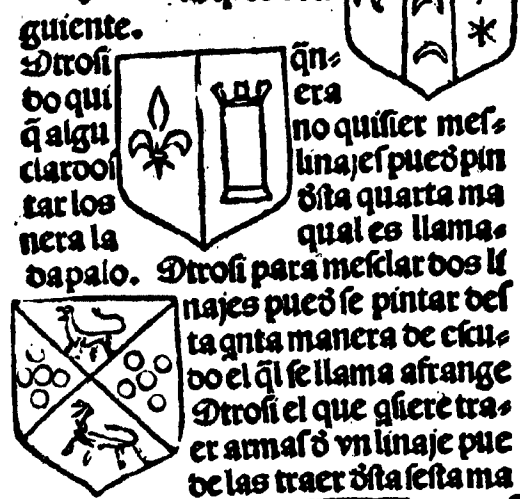 guiente.
Otrosi q̃n⸗
do qui era
q̃ algu no quisier mes⸗
clar dos linajes pued̃ pin
tar los d̃sta quarta ma
nera la qual es llama⸗
da palo. Otrosi para mesclar dos li
najes pued̃ se pintar des
ta q̃nta manera de escu⸗
do el q̃l se llama afrange
Otrosi el que q̃siere tra⸗
er armas d̃ vn linaje pue
de las traer d̃sta sesta ma